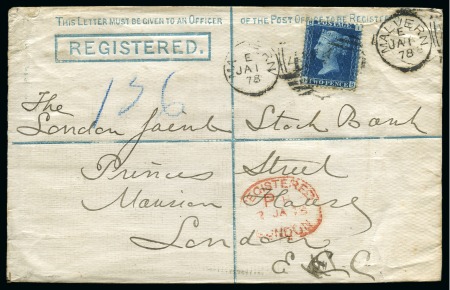 THIS LETTER MUST BE GIVEN TO AN OFFICER OF THE POST OFFICE TO BE REGISTERED
REGISTERED.
MALVERN
E
JA 1
78
TWO PENCE
MALVERN
E
JA 1
78
156
The
London Joint Stock Bank
Princes Street
Mansion House
London
E.C.
REGISTERED
JA 78
LONDON